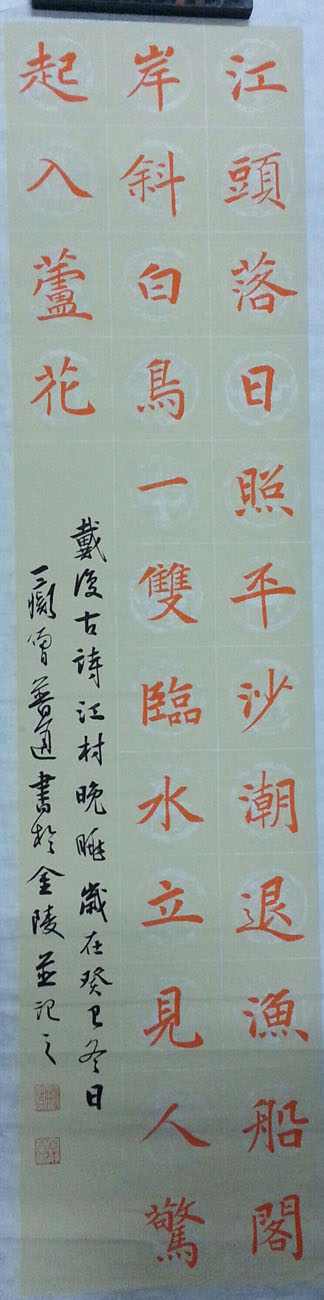 江頭落日照平沙潮退漁船閣
岸斜白鳥一雙臨水立見人驚
起入蘆花
戴復古詩江村晚眺歲在癸巳冬日
普通書於金陵並記之